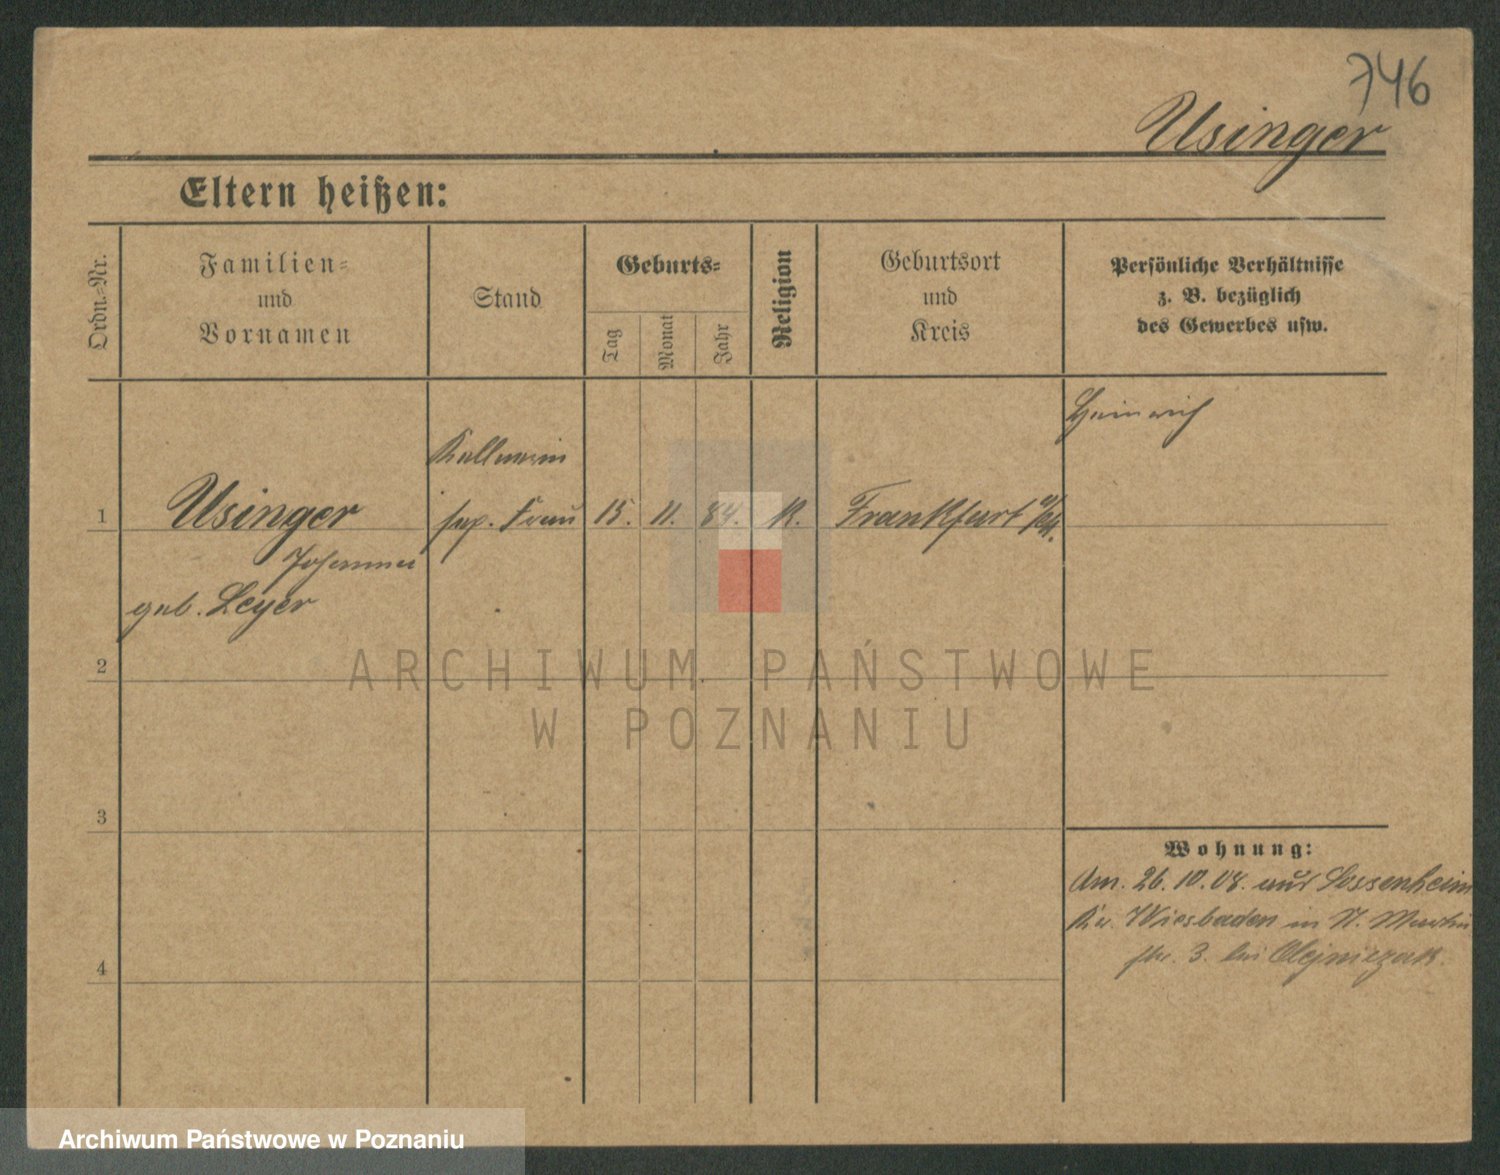 746
Usinger
Eltern heißen:
Ordn.-Nr.
Familien-
und
Vornamen
Stand
Geburts-
Tag
Monat
Jahr
Religion
Geburtsort
und
Kreis
Persönliche Verhältnisse
z. B. bezüglich
des Gewerbes usw.
Heinrich
Kellnerin
1 Usinger sep. Frau 15. 11. 84. K. Frankfurt a/M.
Johanna
geb. Leyer
2
ARCHIWUM PAŃSTWOWE
W POZNANIU
3
Wohnung:
Am. 26. 10. 08. aus Sossenheim
Kr. Wiesbaden in St. Martin
str. 3. bei Olejniczak.
4
Archiwum Państwowe w Poznaniu